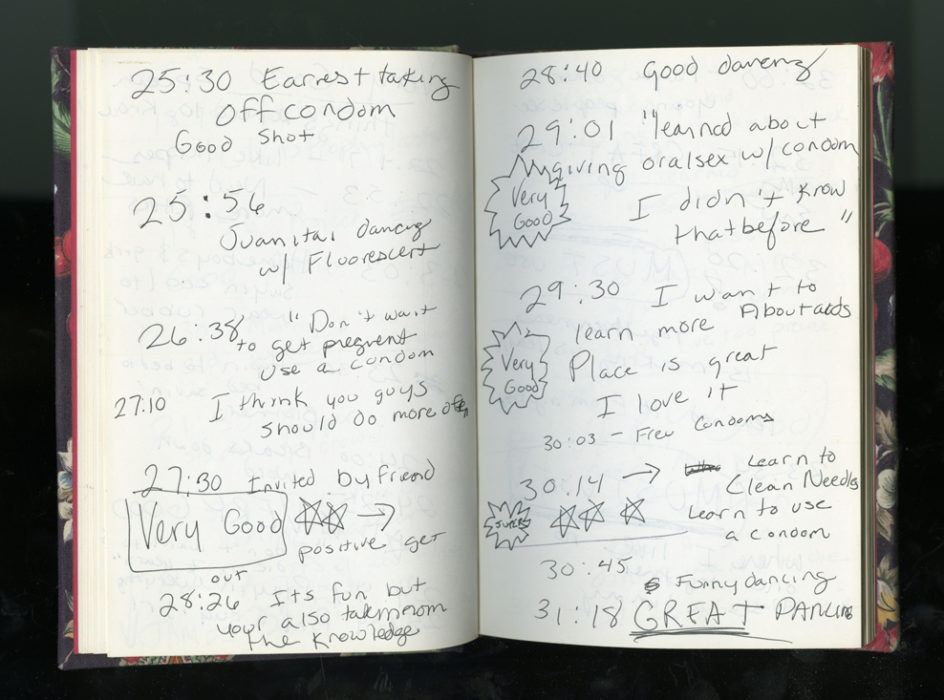 25:30 Earnest taking
off condom
Good Shot
25:56
Juanitai dancing
w/ Fluorescent
26:38 "Don't want
to get pregnent
use a condom
27:10 I think you guys
should do more often
27:30 Invited by friend
Very Good →
positive get
out
28:26 Its fun but
your also taken
the knowledge
28:40 Good dancing
29:01 "learned about
giving oral sex w/ condom
Very
Good
I didn't know
that before"
29:30 I want to
learn more About aids
Very
Good
Place is great
I love it
30:03 - Free Condoms
30:14 → Learn to
Clean Needles
Super
Learn to use
a condom
30:45
Funny dancing
31:18 GREAT